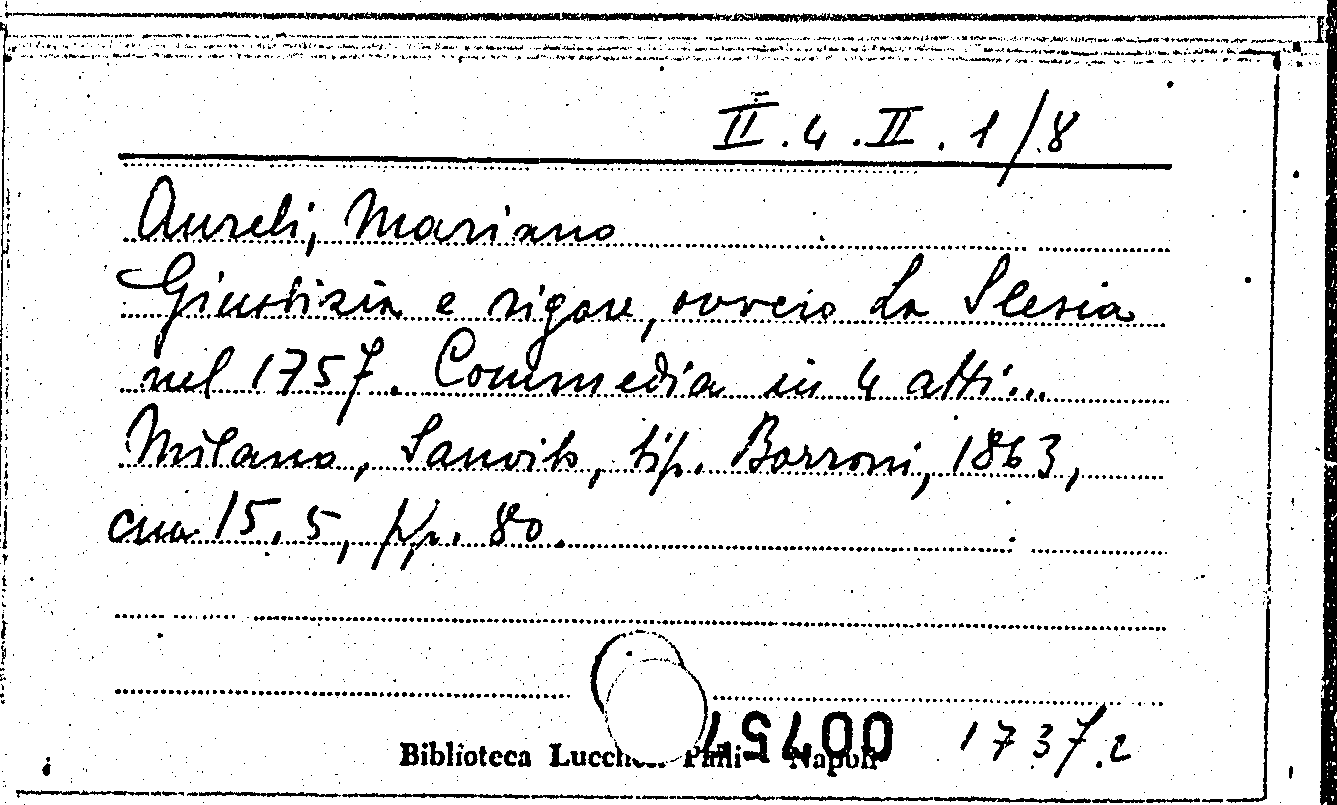 II.4.II.1/8
Aureli, Mariano
Giustizia e rigore, ovvero La Slesia
nel 1757. Commedia in 4 atti...
Milano, Sanvito, tip. Borroni, 1863,
cm 15,5, pp. 80.
1737.2
Biblioteca Lucchesi Palli Napoli